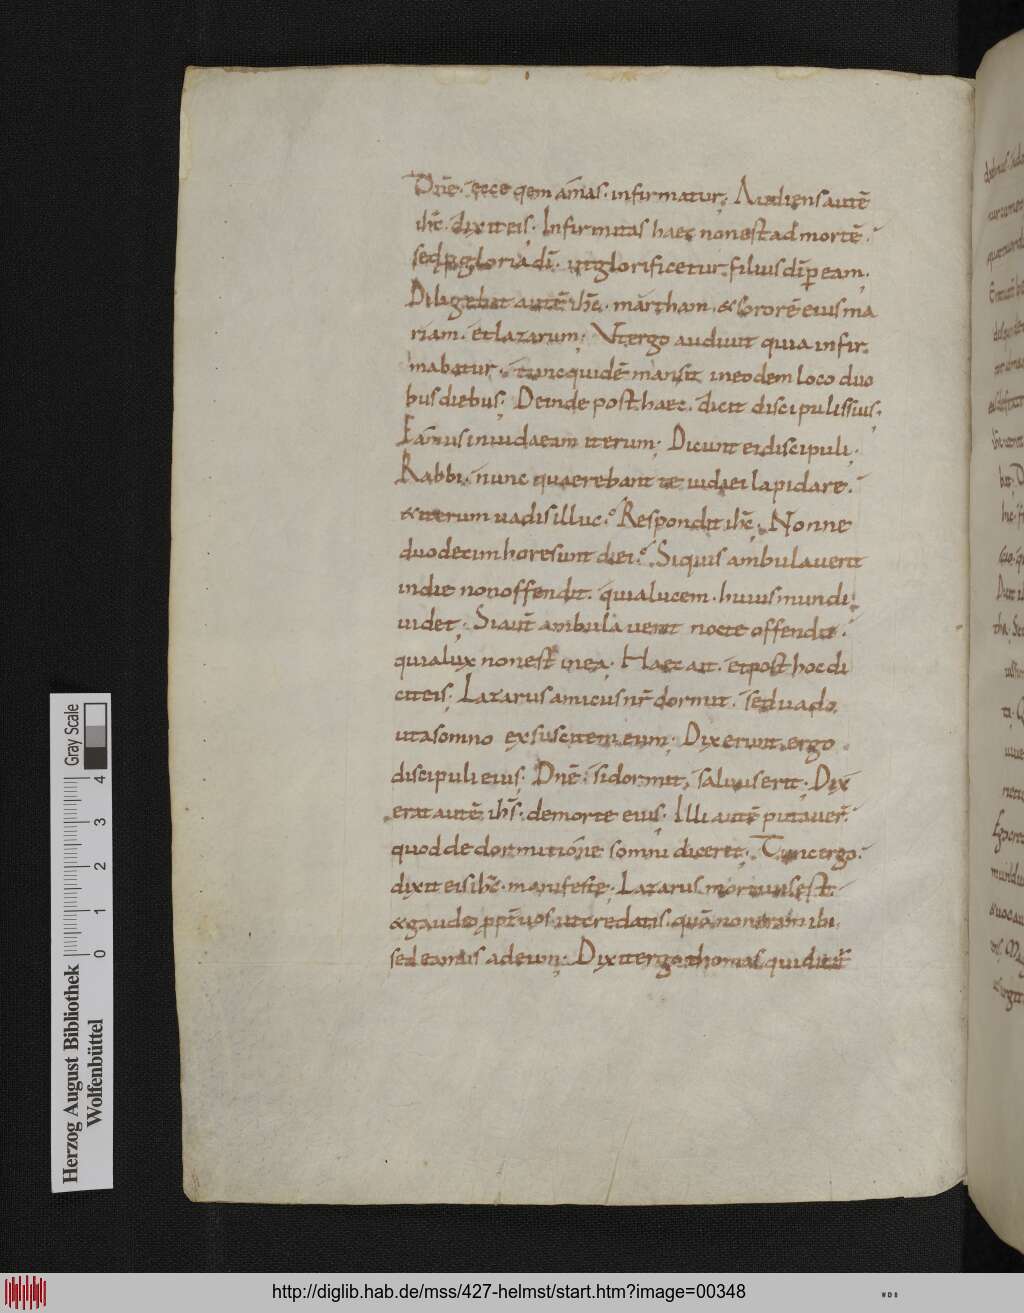 Dnē· ecce qem amas· infirmatur; Audiens autē
ihc̄· dixit eis; Infirmitas haec non est ad mortē·
sed p gloria dī· ut glorificetur filius dī p eam;
Diligebat autē ihc̄· martham· & sororē eius ma
riam· et lazarum; Ut ergo audiuit quia infir
mabatur· tunc quidē mansit in eodem loco duo
bus diebus; Deinde post haec· dicit discipulis suis;
Eamus in iudaeam iterum; Dicunt ei discipuli;
Rabbi· nunc quaerebant te iudaei lapidare·
& iterum uadis illuc· Respondit ihc̄; Nonne
duodecim hore sunt diei· Si quis ambulauerit
in die non offendit· quia lucem· huius mundi
uidet; Si aut̄ ambulauerit nocte offendit·
quia lux non est in ea; Haec ait· et post hoc di
cit eis; Lazarus amicus nr̄ dormit· sed uado
ut a somno exsuscitem eum; Dixerunt ergo
discipuli eius; Dnē· si dormit, saluus erit; Dix
erat autē ihs̄· de morte eius; Illi autē putauer̄·
quod de dormitione somni diceret; Tunc ergo·
dixit eis ihc̄· manifeste; Lazarus mortuus est
& gaudeo ppt̄ uos ut credatis· quō non eram ibi·
sed eamus ad eum; Dixit ergo thomas qui dicit̄
Herzog August Bibliothek
Wolfenbüttel
0 1 2 3 4
Gray Scale
http://diglib.hab.de/mss/427-helmst/start.htm?image=00348